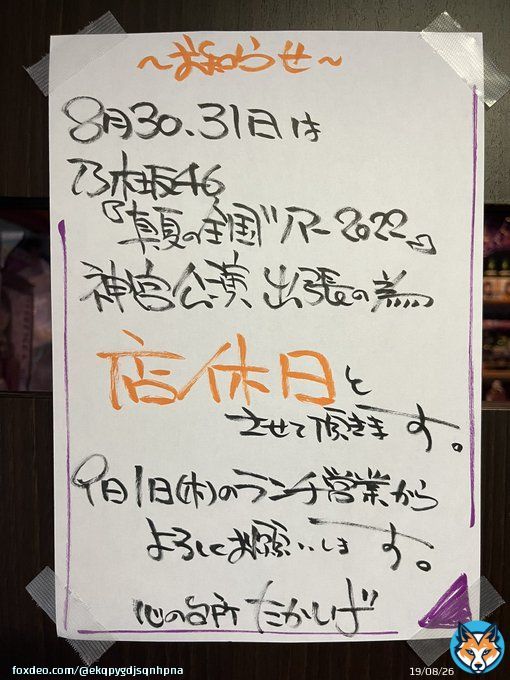 ～お知らせ～
8月30、31日は
乃木坂46
『真夏の全国ツアー2022』
神宮公演 出張の為
店休日と
させて頂きます。
9月1日(木)のランチ営業から
よろしくお願いします。
心の台所 たかしげ
foxdeo.com/@ekqpygdjsqnhpna
19/08/26